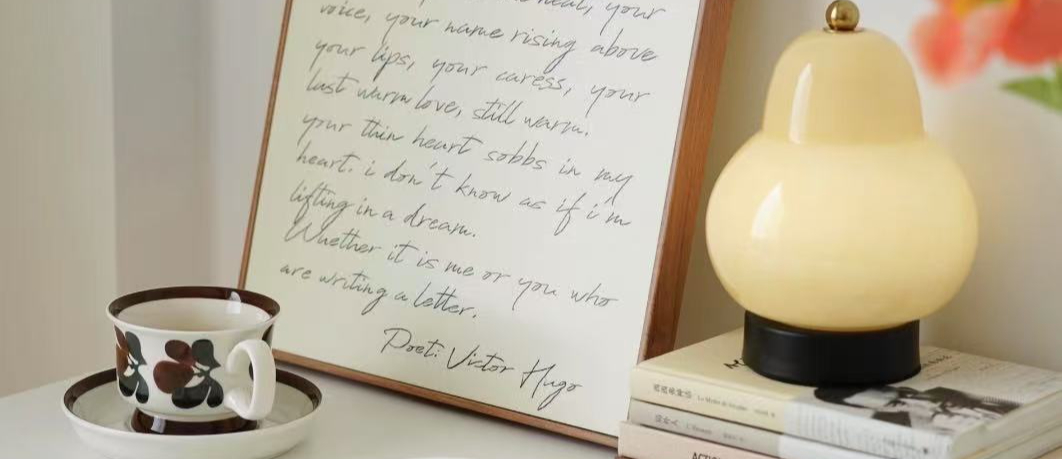 your
voice, your name rising above
your lips, your caress, your
last warm love, still warm.
your thin heart sobbs in my
heart. i don't know as if i'm
lifting in a dream.
Whether it is me or you who
are writing a letter.
Poet: Victor Hugo